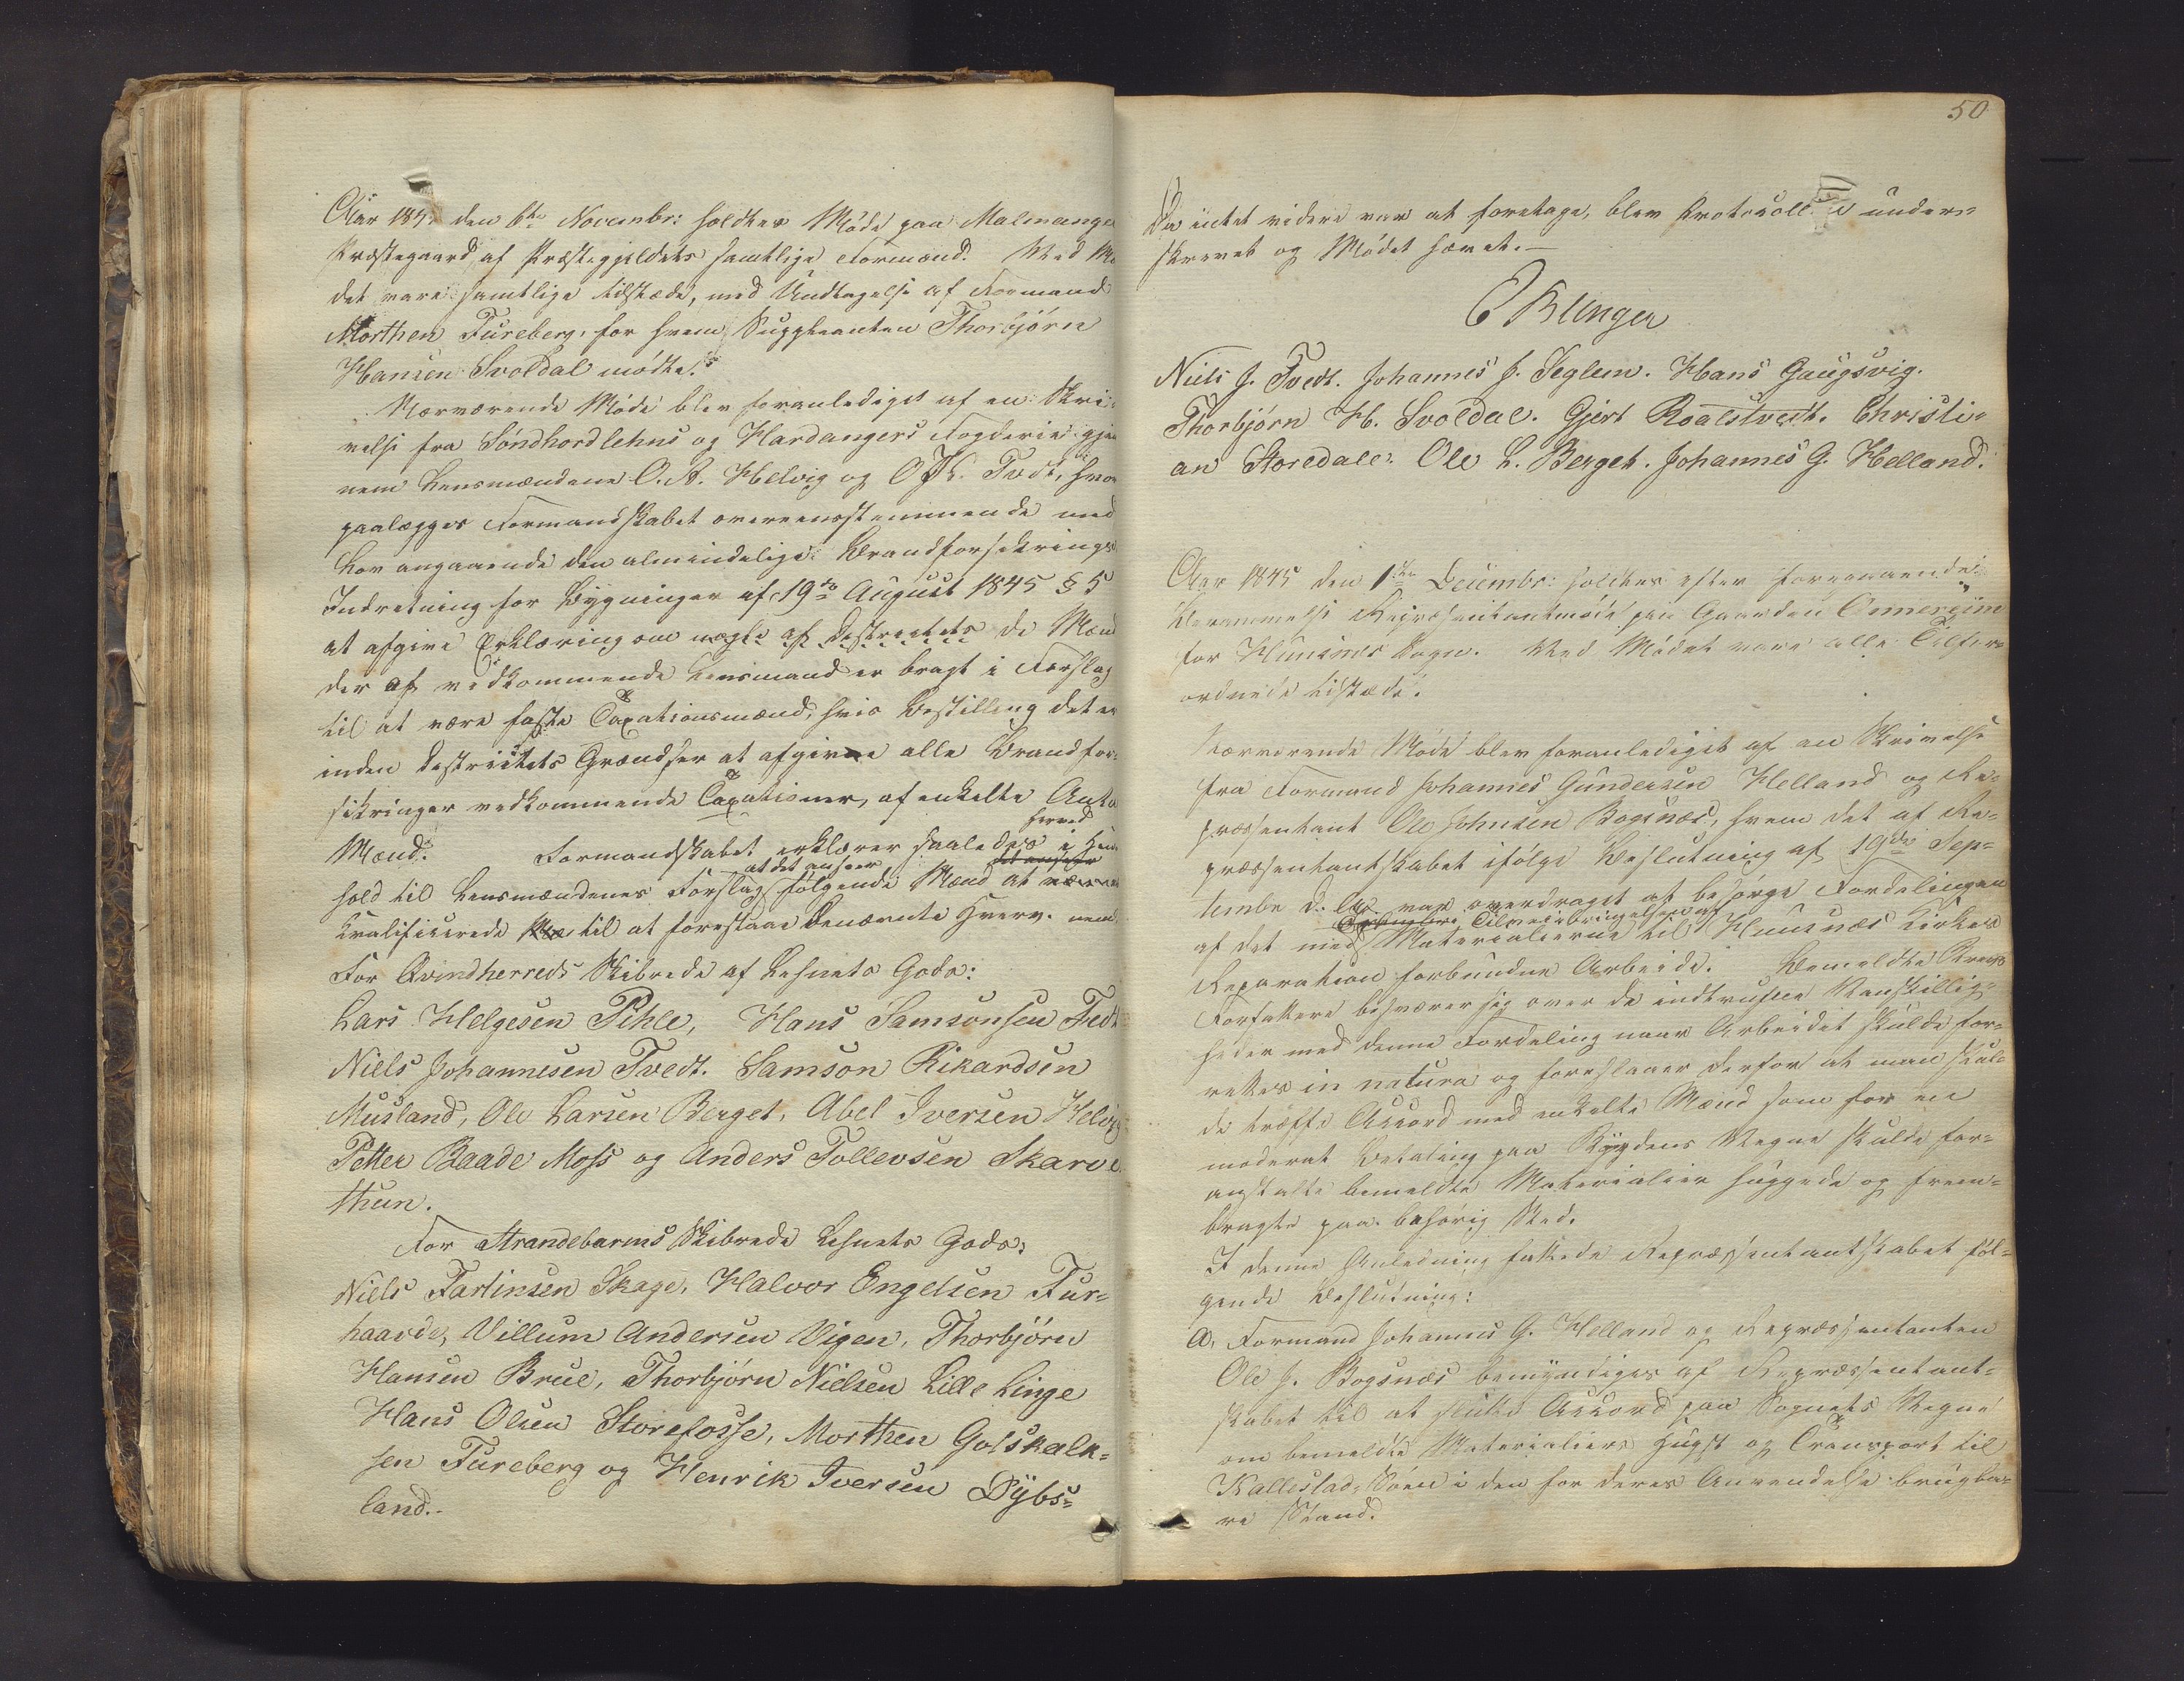 Aar 184 den 6te Novembr: holdtes Møde paa Malmange
Præstegaard af Præstegjeldets samtlige Formænd. Ved Mø
det vare samtlige tilstæde, med Undtagelse af Formand
Morthen Fureberg, for hvem Suppleanten Thorbjørn
Hansen Svoldal mødte.
Nærværende Møde blev foranlediget af en Skri-
velse fra Søndhordlehns og Hardangers Fogderie gjen
nem Lensmændene O. A. Helvig og O Tvedt, hvor
paalægges Formandskabet overeensstemmende med
Lov angaaende den almindelige Brandforsikrings
Indretning for Bygninger af 19de August 1845 § 5
at afgive Erklæring om nogle af Destrictets de Mænd
der af vedkommende Lensmand er bragt i Forslag
til at være faste Taxationsmænd, hvis Bestilling det er
inden Destrictets Grændser at afgive alle Brandfor-
sikringer vedkommende Taxationer, af enkelte
Mænd. Formandskabet erklærer saaledes herved i Hen
hold til Lensmændenes Forslag at det anseer følgende Mænd at være
Kvalificerede til at forestaae benævnte Hverv. nem
For Qvindherreds Skibrede af Lehnets Gods:
Lars Helgesen Pihle, Hans Samsonsen Tvedt
Niels Johannesen Tvedt. Samson Rikardsen
Musland, Ole Larsen Berget, Abel Iversen Helvig
Petter Baade Moss og Anders Tollevsen Skarve
thun.
For Strandebarms Skibrede Lehnets Gods:
Niels Tartinsen Skage, Halvor Engelsen Fur-
haavde, Villum Andersen Vigen, Thorbjørn
Hansen Brue, Thorbjørn Nielsen Lille Linge
Hans Olsen Storefosse, Morthen Gotskalk-
sen Fureberg og Henrik Iversen Dybs-
land.
50
Da intet videre var at foretage, blev Protocollen under-
skrevet og Mødet hævet.—
E Klinger
Niels J. Tvedt. Johannes J. Teglem. Hans Gaugsvig.
Thorbjørn H. Svoldal. Gjert Roalstvedt. Christi-
an Storedale. Ole L. Berget. Johannes G. Helland.
Aar 1845 den 1ste Decembr: holdtes efter foregaaende
Berammelse Repræsentantmøde paa Gaarden Ommereim
for Huusnes Sogn. Ved Mødet vare alle Tilfor-
ordnede tilstæde.
Nærværende Møde blev foranlediget af en Skrivelse
fra Formand Johannes Gundersen Helland og Re-
præsentant Ole Johnsen Bogsnæs, hvem det af Re-
præsentantskabet ifølge Beslutning af 19de Sep-
tembr d. A. var overdraget at besørge Fordelingen
af det med Tilveiebringelsen af Materialierne til Huusnæs Kirkes
Reparation forbundne Arbeide. Bemeldte Brevs
Forfattere besværer sig over de indtrufne Vanskelig-
heder med denne Fordeling naar Arbeidet skulde for-
rettes in natura og foreslaaer derfor at man skul-
de træffe Accord med enkelte Mænd som for en
moderat Betaling paa Bygdens Regne skulde for-
anstalte bemeldte Materialier huggede og frem-
bragte paa behørig Sted.
I denne Anledning fattede Repræsentantskabet føl-
gende Beslutning:
A, Formand Johannes G. Helland og Repræsentanten
Ole J. Bogsnæs bemyndiges af Repræsentant-
skabet til at slutte Accord paa Sognets Regne
om bemeldte Materialiers Hugst og Transport til
Vallestad-Søen i den for deres Anvendelse brugba-
re Stand.